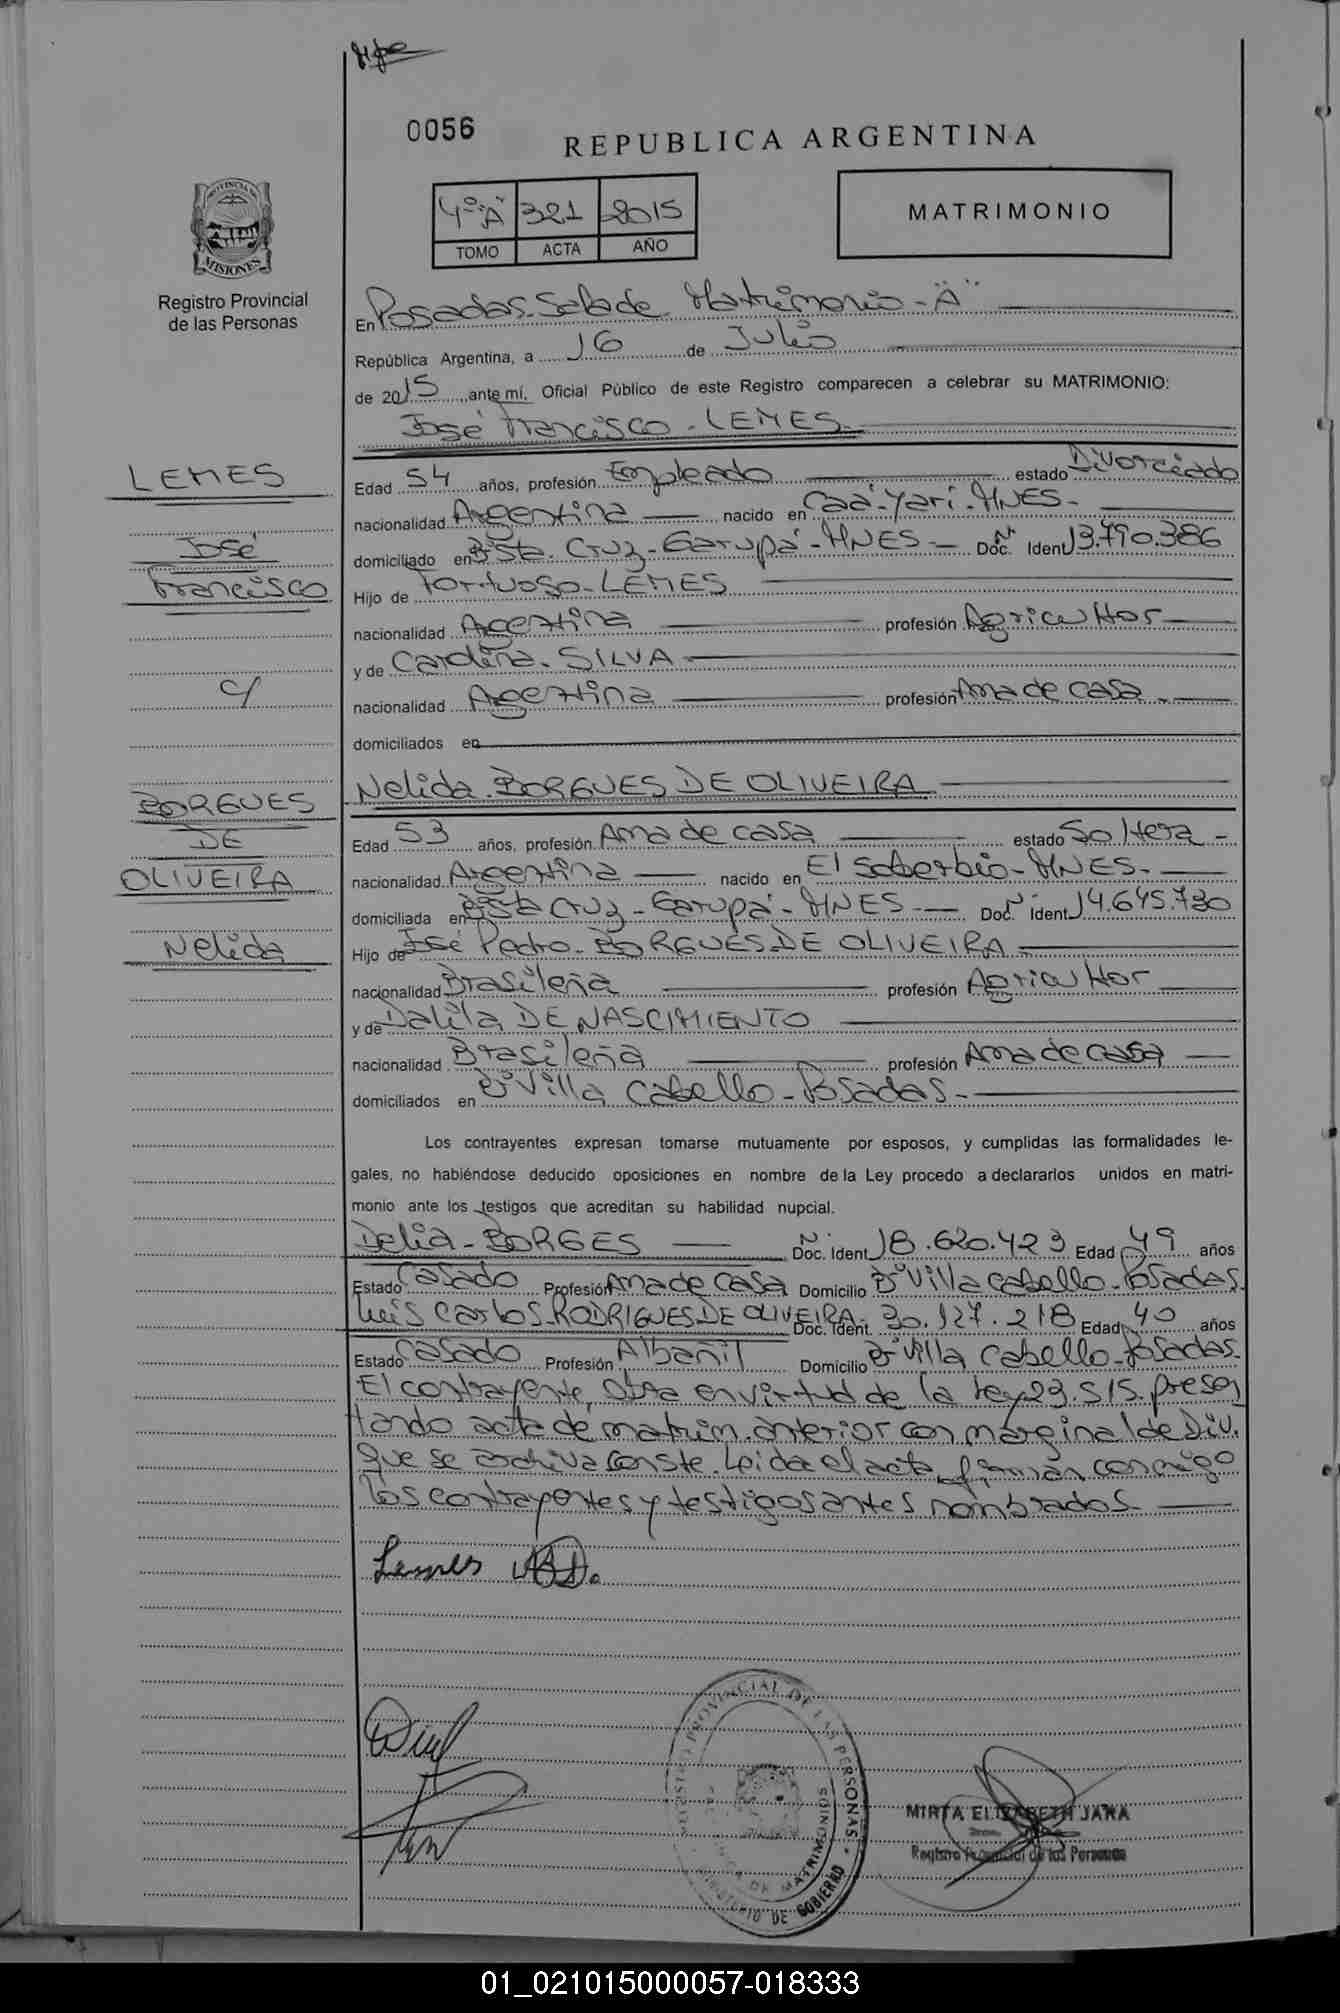 0056
REPUBLICA ARGENTINA
4º "A" 321 2015
TOMO ACTA AÑO
MATRIMONIO
PROVINCIA DE
MISIONES
Registro Provincial
de las Personas
En Posadas-Sala de Matrimonio-"A"
República Argentina, a 16 de Julio
de 2015 ante mí, Oficial Público de este Registro comparecen a celebrar su MATRIMONIO:
José Francisco-LEMES
LEMES
José
Francisco
c/
BORGUES
DE
OLIVEIRA
Nelida
Edad 54 años, profesión Empleado estado Divorciado
nacionalidad Argentina nacido en Caá-Yarí-MNES-
domiciliado en Bº Sta. Cruz-Garupá-MNES- Nº Doc. Ident 13.790.386
Hijo de Fortuoso-LEMES
nacionalidad Argentina profesión Agricultor
y de Cardina-SILVA
nacionalidad Argentina profesión Ama de casa
domiciliados en
Nelida BORGUES DE OLIVEIRA
Edad 53 años, profesión Ama de casa estado Soltera-
nacionalidad Argentina nacido en El Soberbio-MNES-
domiciliada en Bº Sta Cruz-Garupá-MNES- Nº Doc. Ident 14.645.730
Hijo de José Pedro-BORGUES DE OLIVEIRA
nacionalidad Brasileña profesión Agricultor
y de Dalila DE NASCIMIENTO
nacionalidad Brasileña profesión Ama de casa
domiciliados en Bº Villa Cabello-Posadas-
Los contrayentes expresan tomarse mutuamente por esposos, y cumplidas las formalidades le-
gales, no habiéndose deducido oposiciones en nombre de la Ley procedo a declararlos unidos en matri-
monio ante los testigos que acreditan su habilidad nupcial.
Delia-BORGES Nº Doc. Ident 18.620.423 Edad 49 años
Estado Casado Profesión Ama de casa Domicilio Bº Villa Cabello-Posadas.
Luis Carlos RODRIGUES DE OLIVEIRA Doc. Ident. 30.127.218 Edad 40 años
Estado Casado Profesión Albañil Domicilio Bº Villa Cabello-Posadas.
El contrayente, obra en virtud de la Ley 23.515. presen
tando acta de matrim. anterior con marginal de Div.
que se archiva conste. Leida el acta, firman conmigo
los contrayentes y testigos antes nombrados.
Lemes
REGISTRO PROVINCIAL DE LAS PERSONAS
MINISTERIO DE GOBIERNO
DE MATRIMONIOS
MIRTA ELIZABETH JARA
Registro Provincial de las Personas
01_021015000057-018333